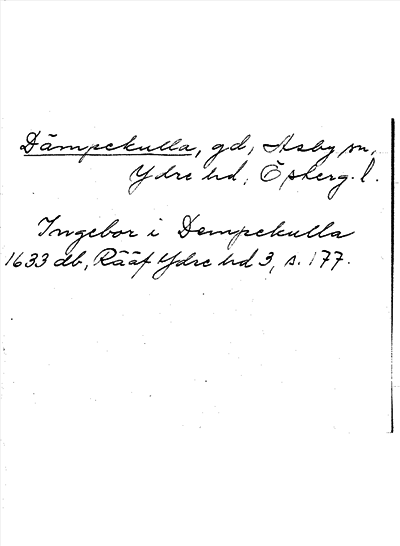 Dämpekulla, gd, Asby sn,
Ydre hd, Ö bberg. l.
Ingebor i Dempekulla
1633 db, Rääf Ydre hd 3, s. 177.